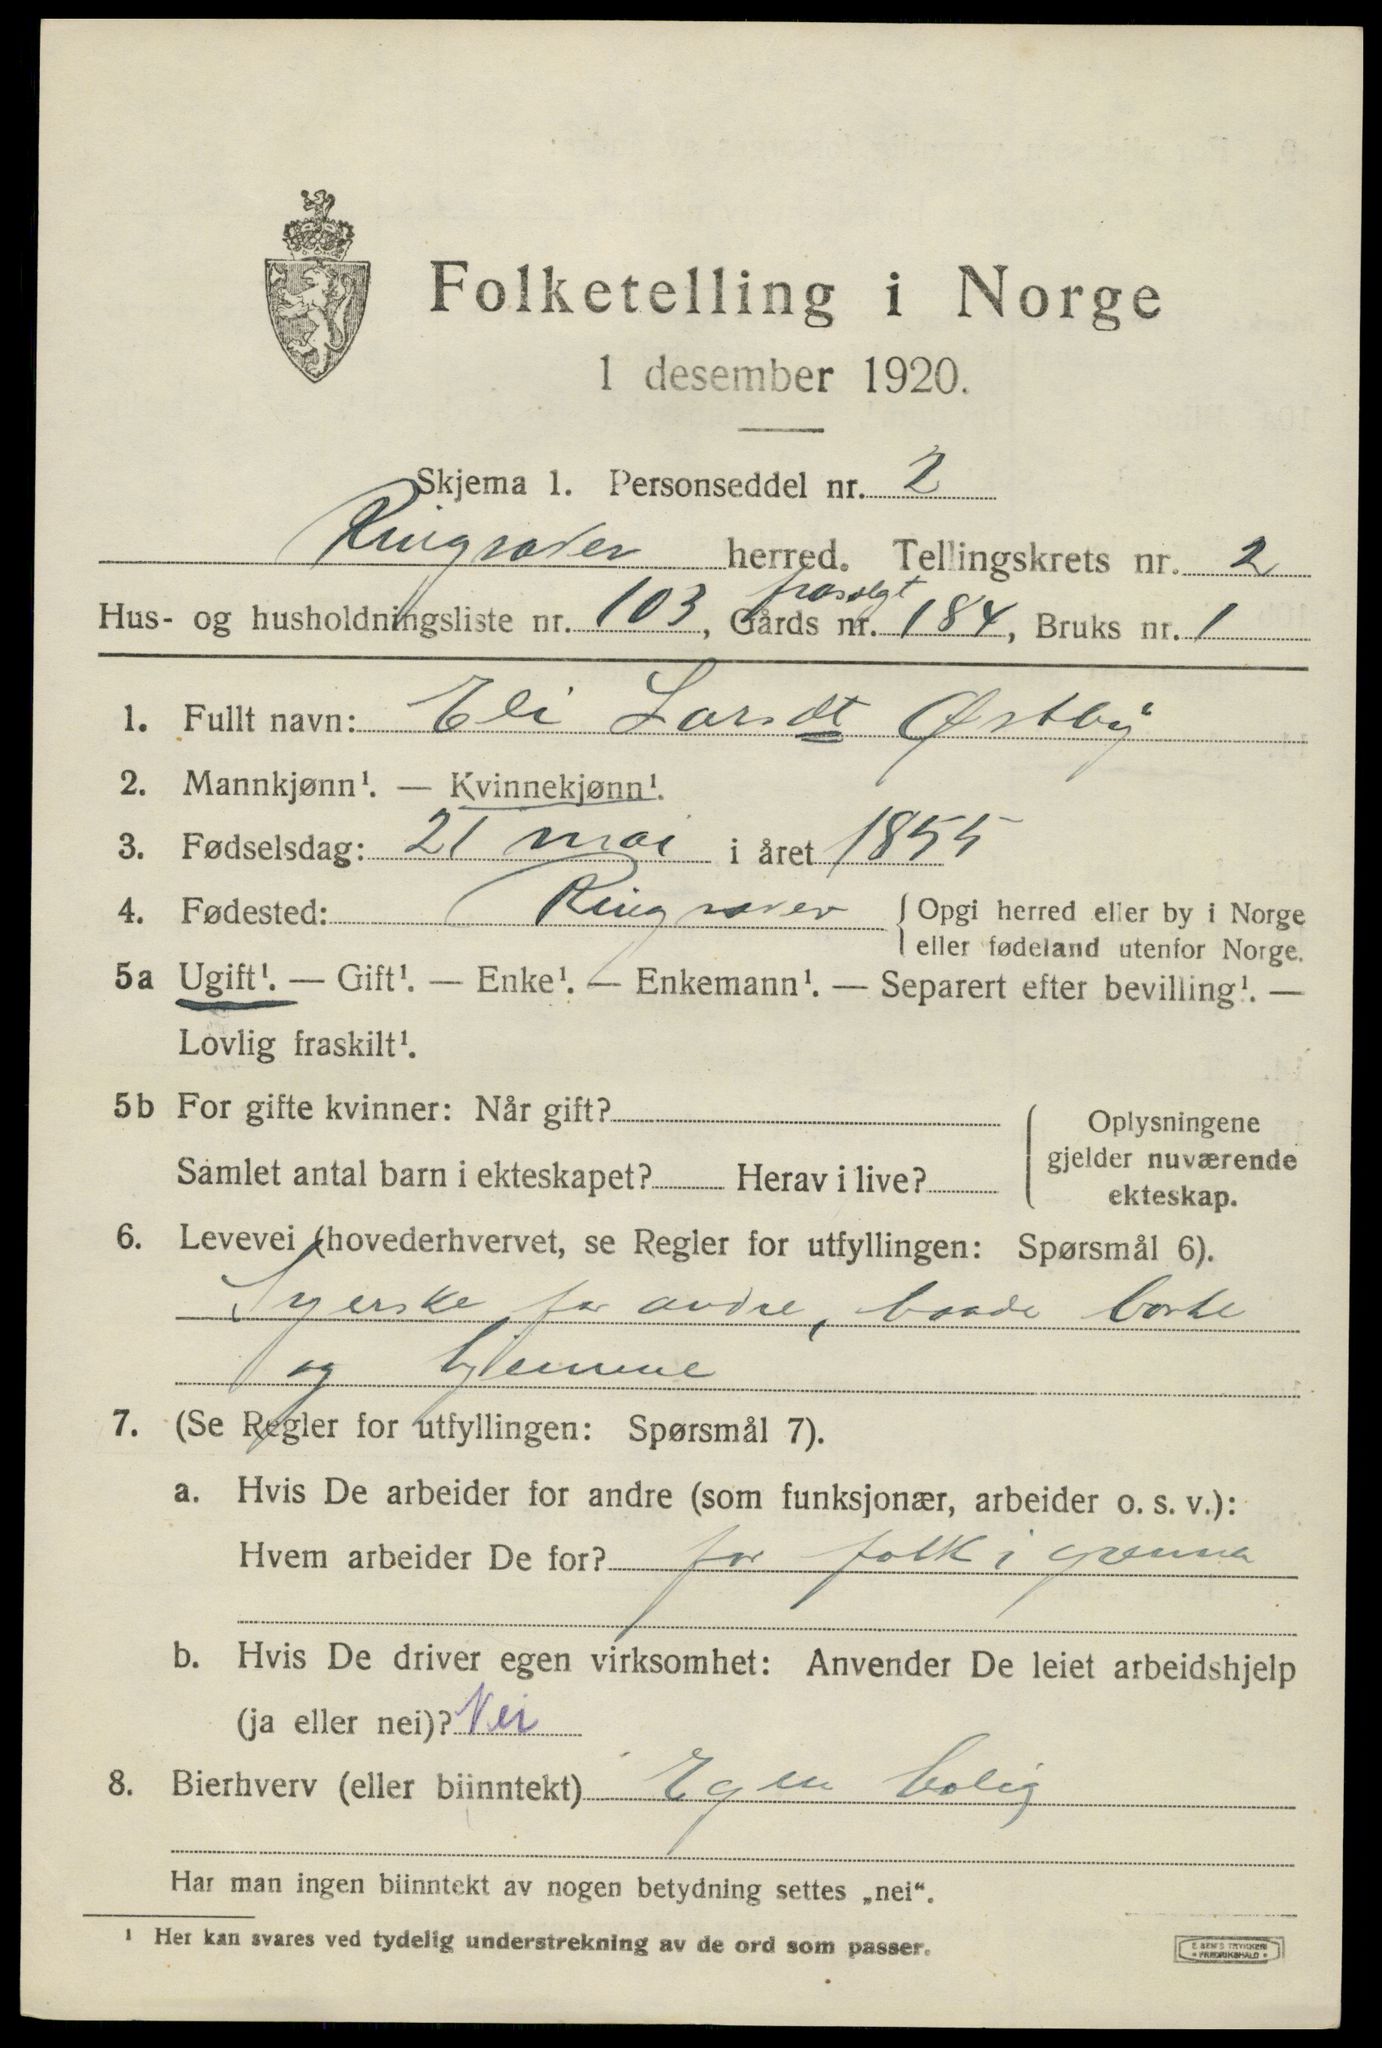 Folketelling i Norge
1 desember 1920.
Skjema 1. Personseddel nr. 2
Ringsaker herred. Tellingskrets nr. 2
frasolgt
Hus- og husholdningsliste nr. 103, Gårds nr. 184, Bruks nr. 1
1. Fullt navn: Eli Larsdt Østby
2. Mannkjønn¹. — Kvinnekjønn¹.
3. Fødselsdag: 21 mai i året 1855
4. Fødested: Ringsaker { Opgi herred eller by i Norge
eller fødeland utenfor Norge.
5a Ugift¹. — Gift¹. — Enke¹. — Enkemann¹. — Separert efter bevilling¹. —
Lovlig fraskilt¹.
5b For gifte kvinner: Når gift?
Samlet antal barn i ekteskapet? Herav i live?
Oplysningene
gjelder nuværende
ekteskap.
6. Levevei (hovederhvervet, se Regler for utfyllingen: Spørsmål 6).
Syerske for andre, baade borte
og hjemme
7. (Se Regler for utfyllingen: Spørsmål 7).
a. Hvis De arbeider for andre (som funksjonær, arbeider o. s. v.):
Hvem arbeider De for? for folk i grenna
b. Hvis De driver egen virksomhet: Anvender De leiet arbeidshjelp
(ja eller nei)? Nei
8. Bierhverv (eller biinntekt) Egen bolig
Har man ingen biinntekt av nogen betydning settes „nei“.
¹ Her kan svares ved tydelig understrekning av de ord som passer.
E. SEM'S TRYKKERI
• FREDRIKSHALD •